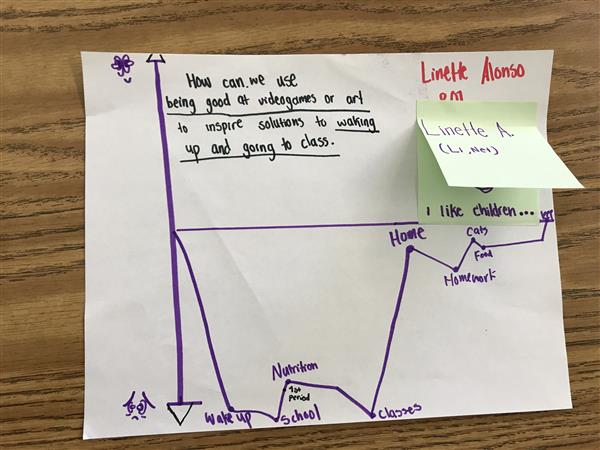 How can we use
being good at videogames or art
to inspire solutions to waking
up and going to class.
Linette Alonso
Linette A.
(Li, Net)
i like children...
Home
Cats
Food
Homework
Nutrition
1st
period
Wake up
School
Classes